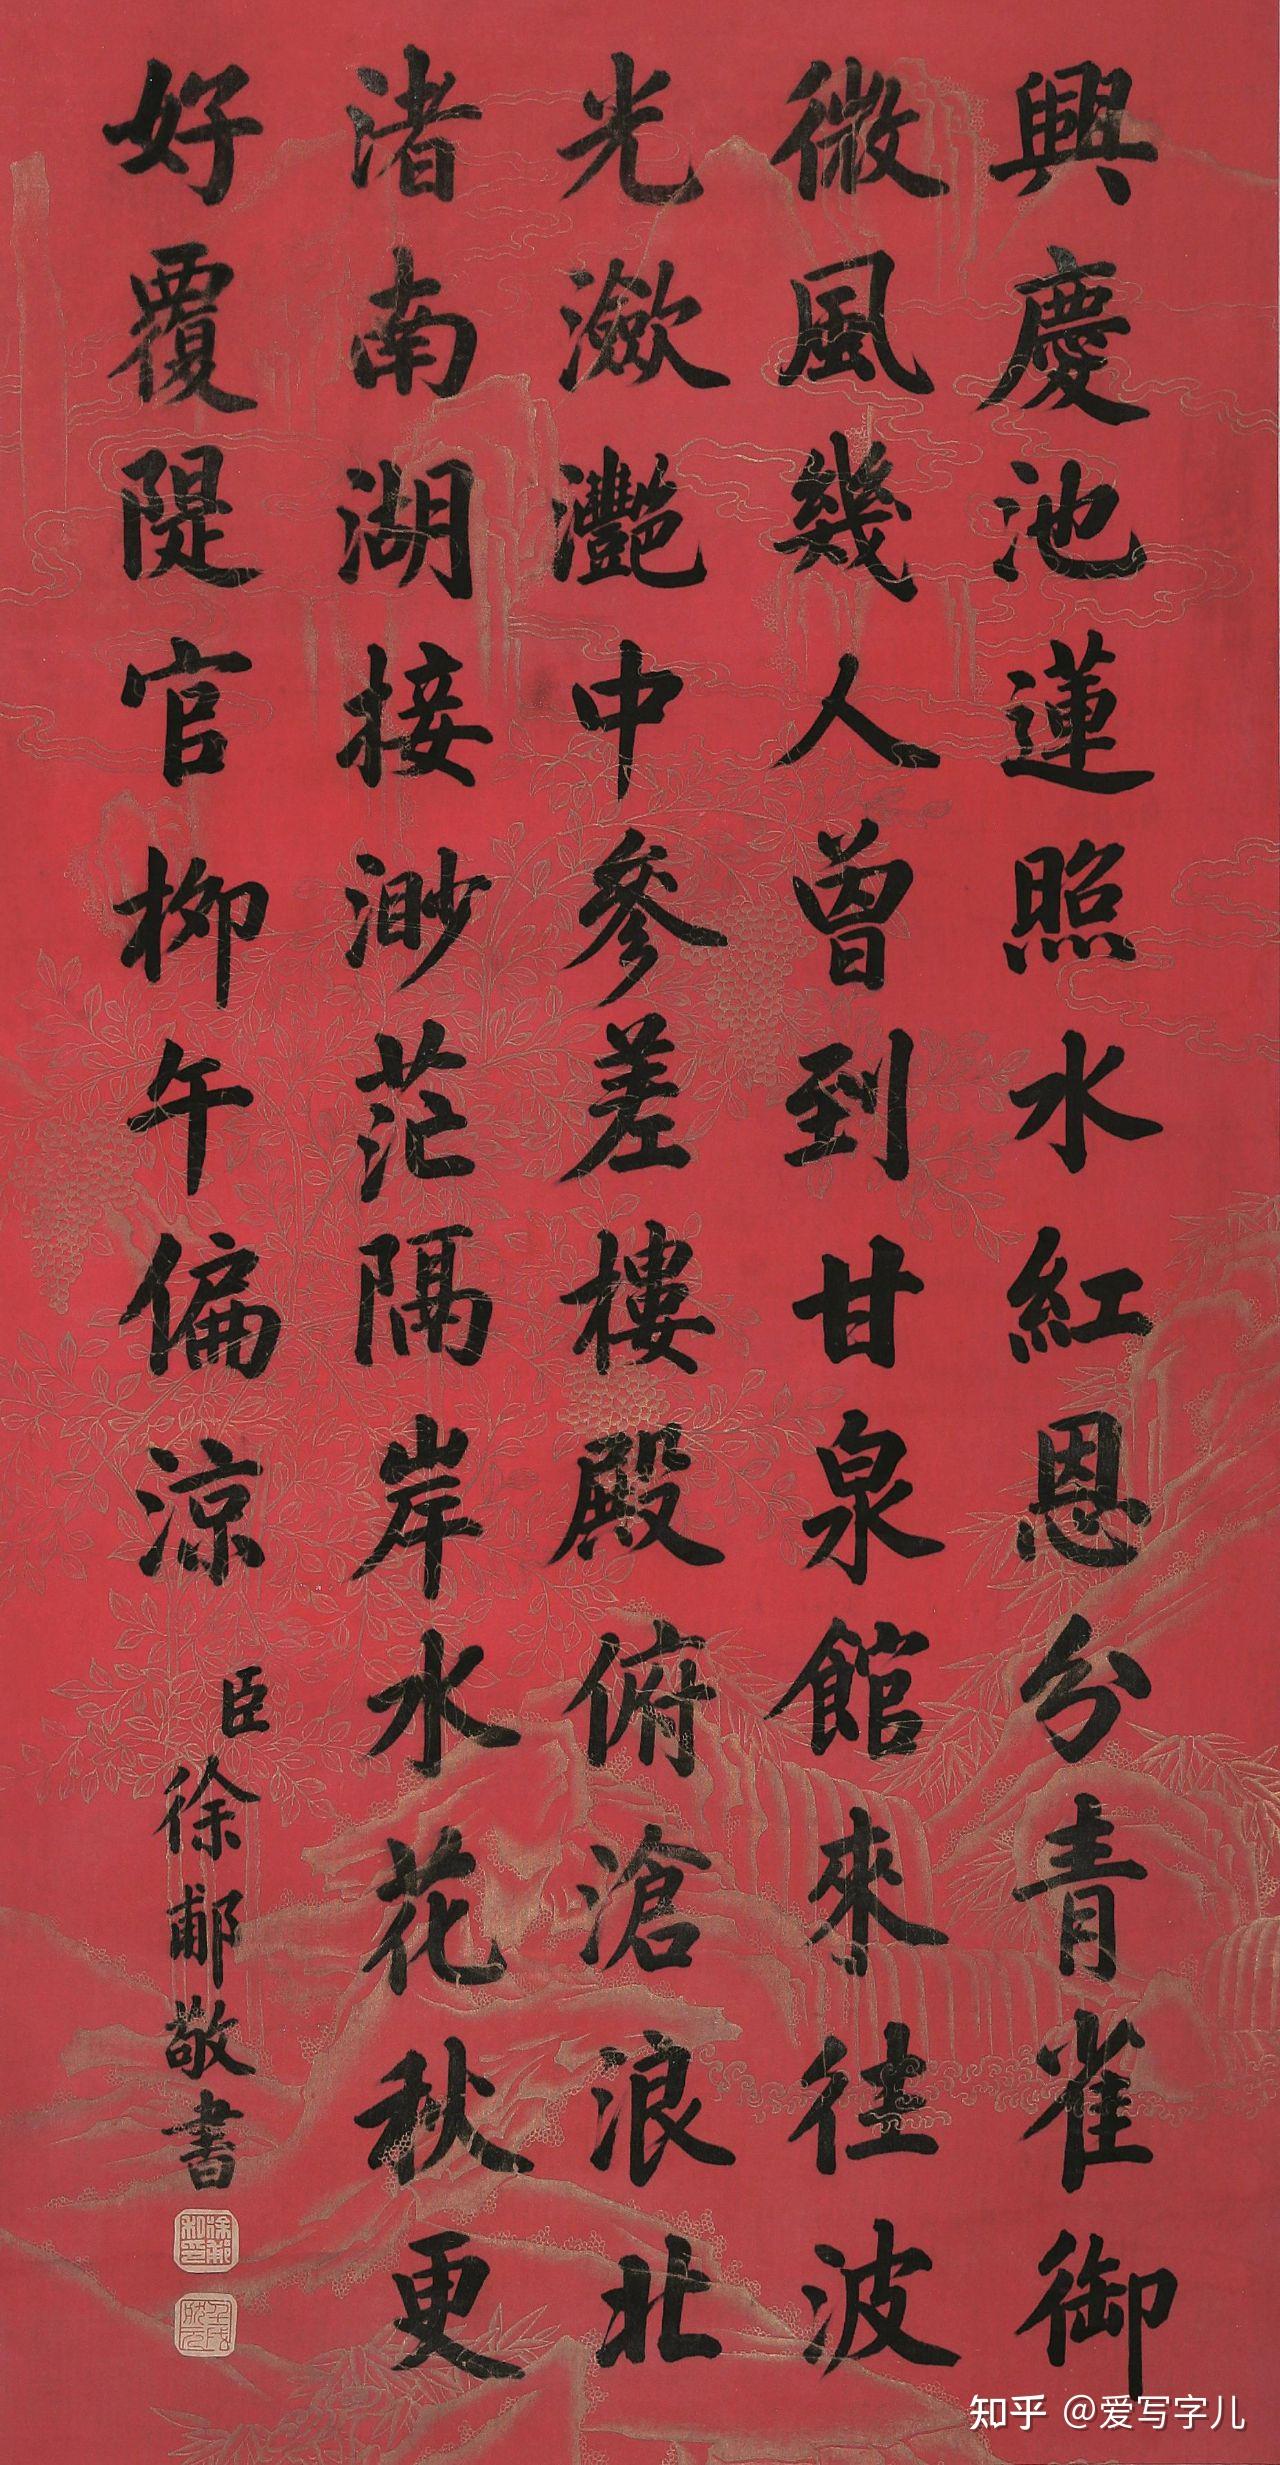 興慶池蓮照水紅恩分青雀御
微風幾人曾到甘泉館來往波
光瀲灧中參差樓殿俯滄浪北
渚南湖接渺茫隔岸水花秋更
好覆隄官柳午偏涼
臣徐郙敬書
知乎 @爱写字儿